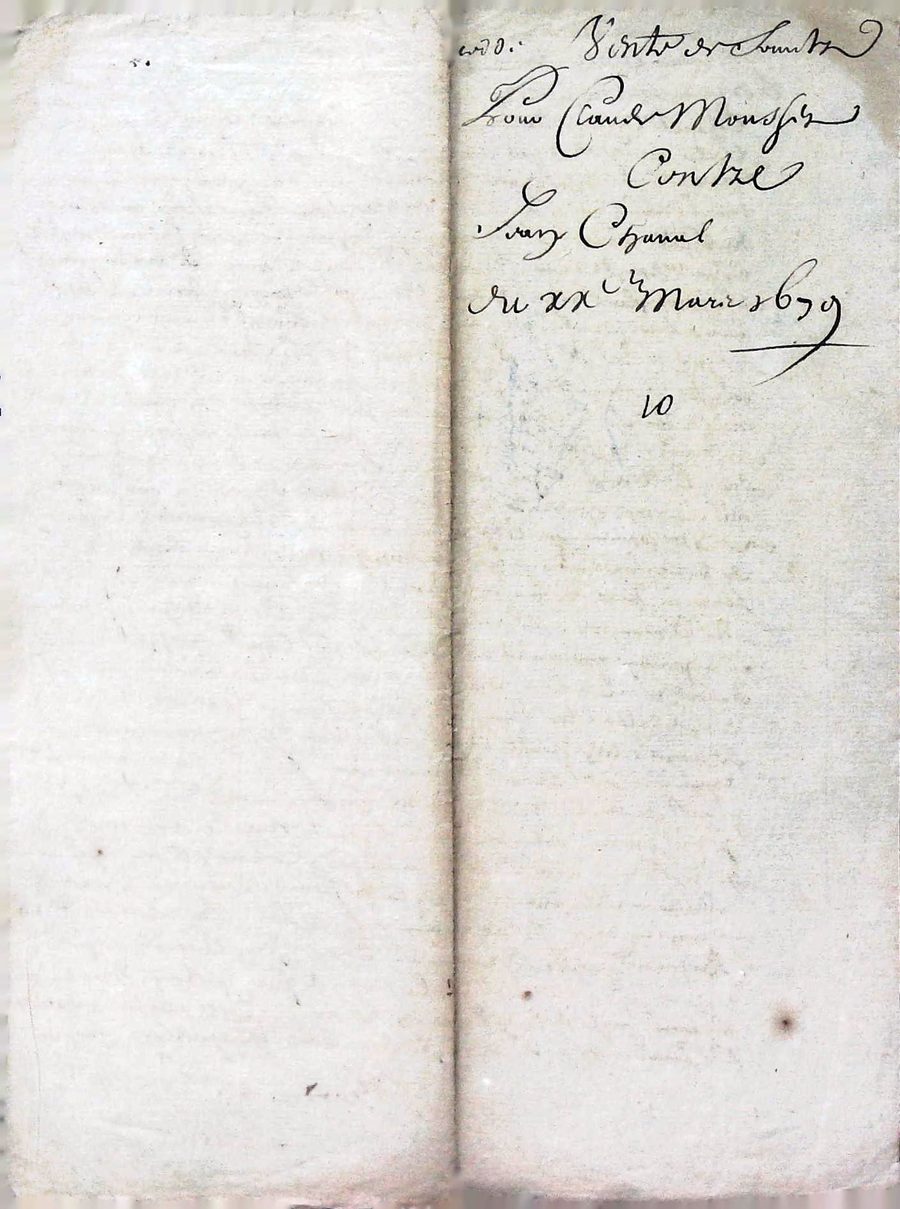 Vente de
Pour Claude Mousset
Contre
Jean Chanal
du xxe Mars 1679
10